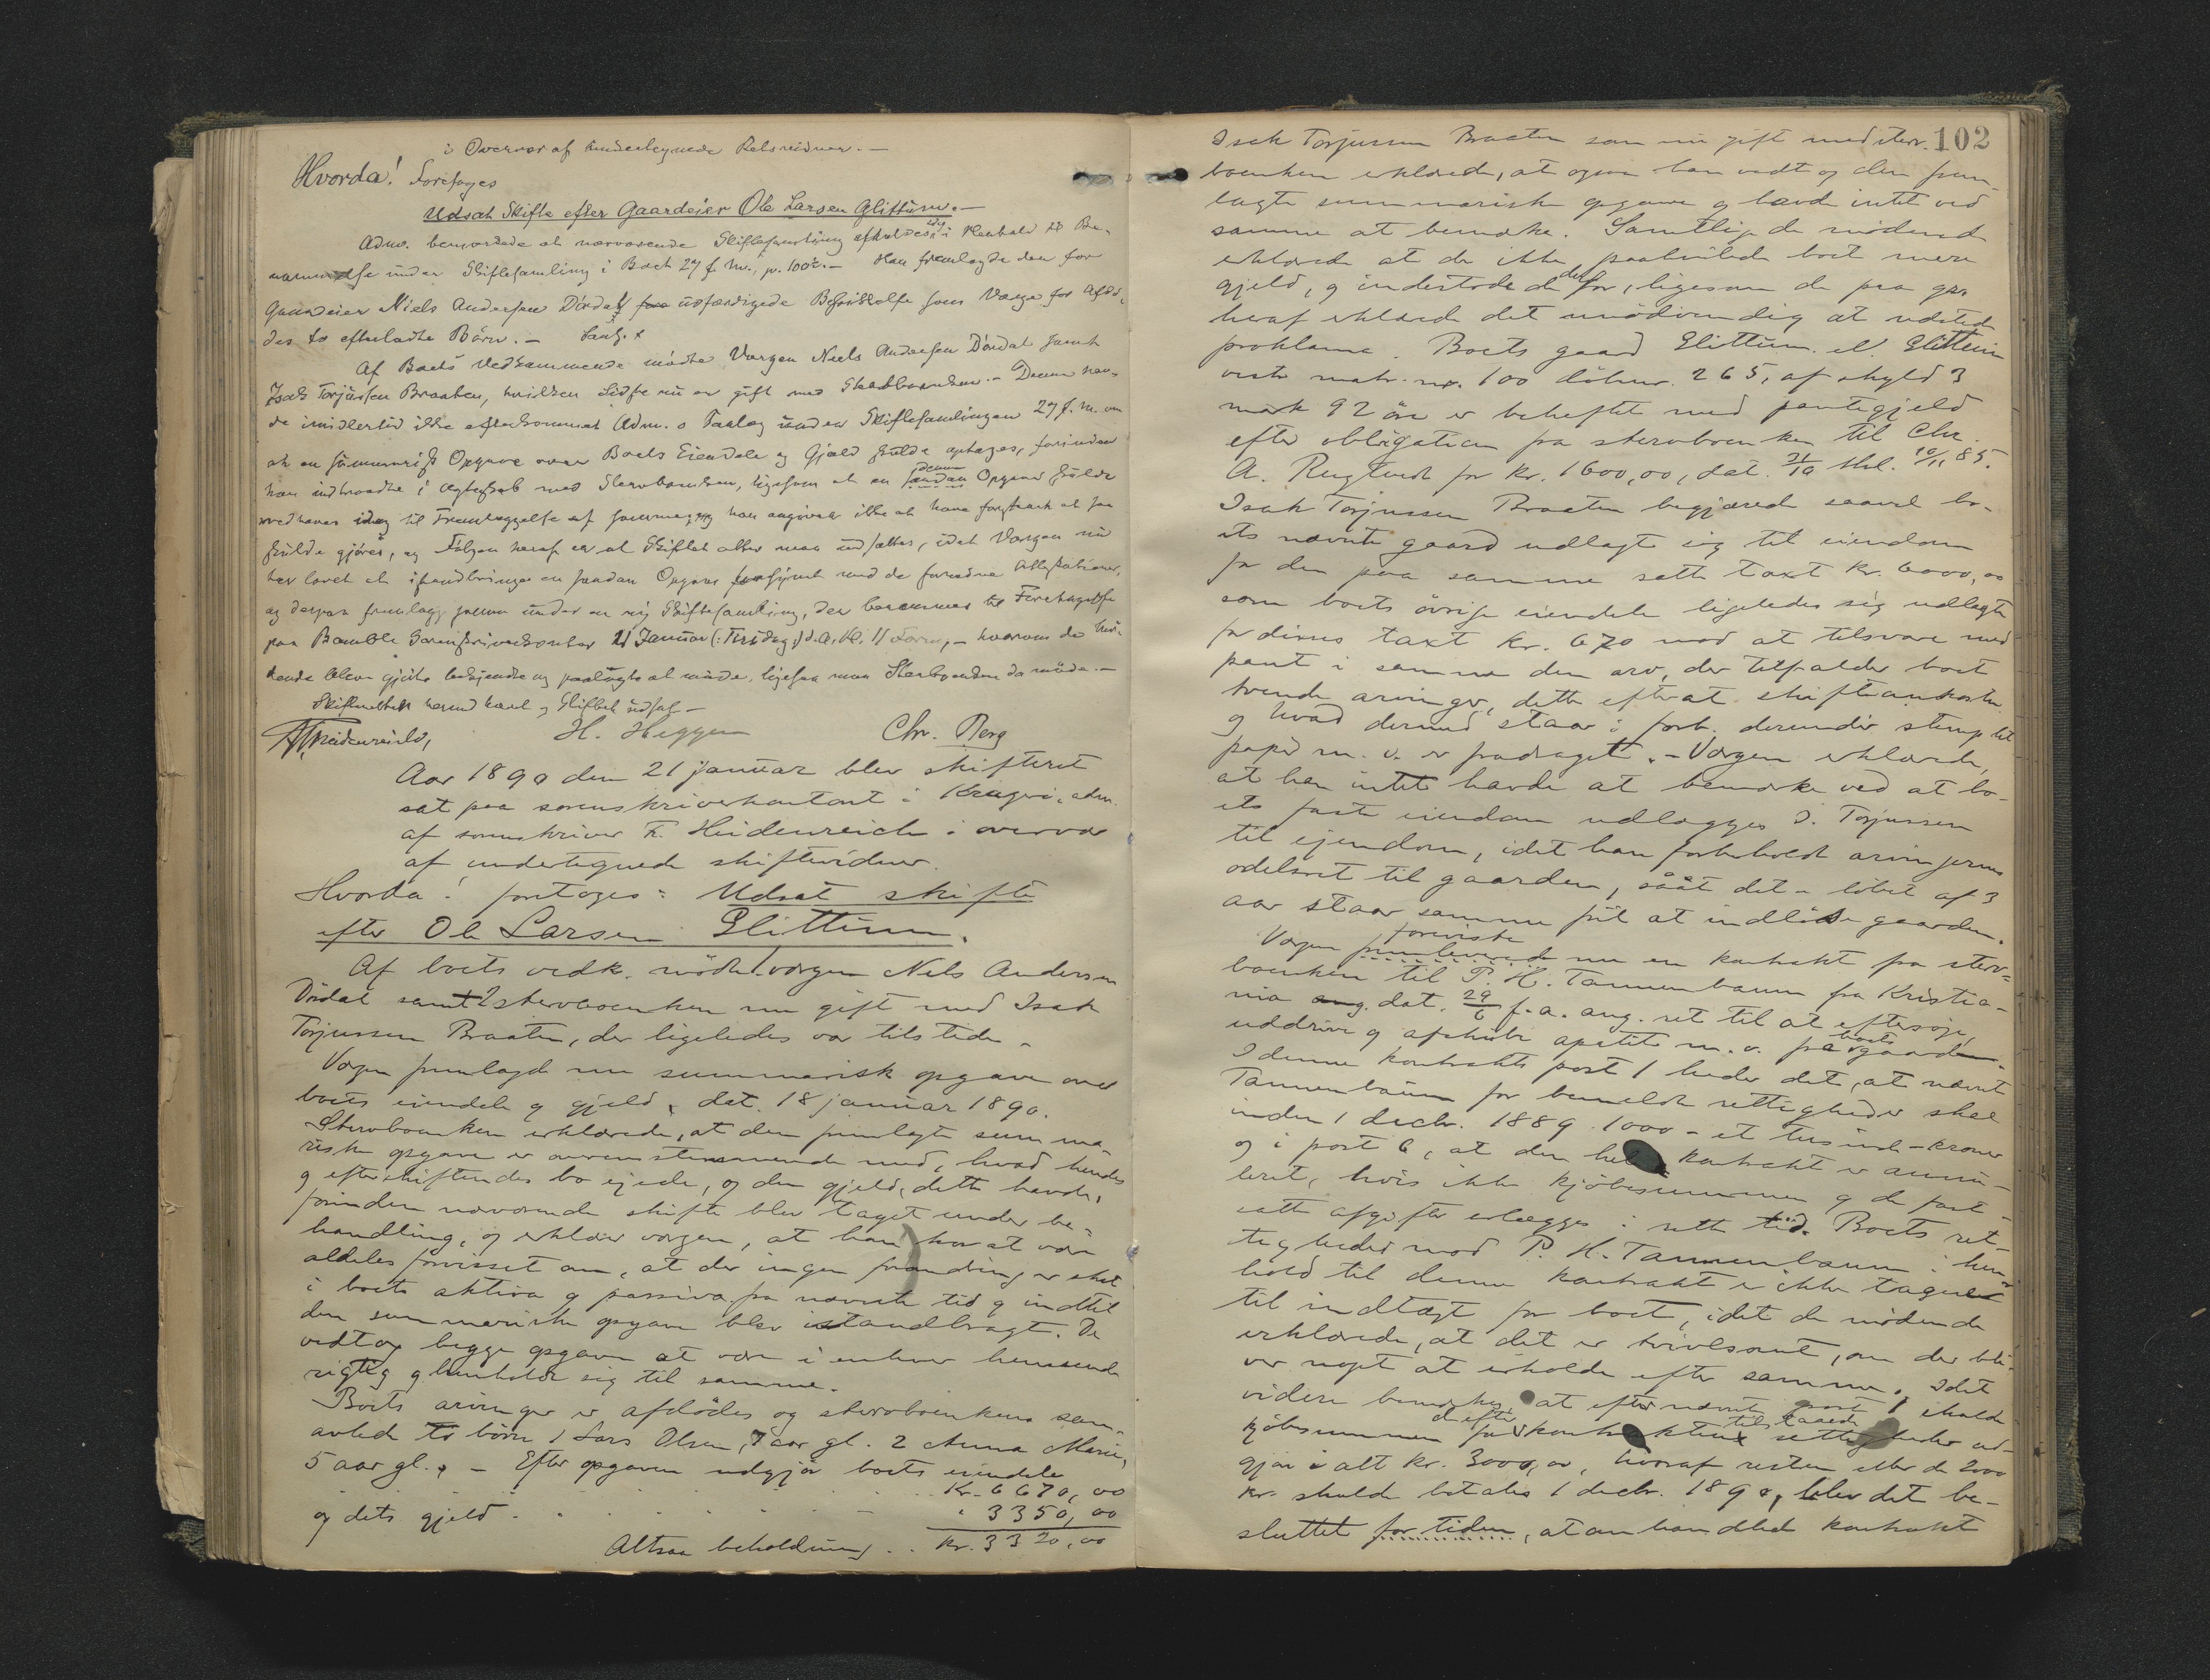 i Overvær af undertegnede Retsvidner. —
Hvorda! Foretages
Udsat Skifte efter Gaardeier Ole Larsen Glittum. —
Adm. bemærkede at nærværende Skiftesamling afholdes idag i Henhold til Be-
rammelse under Skiftesamling i Boet 27 f. M., p. 100. — Han fremlagde den for
Gaardeier Niels Andersen Dördal udfærdigede Beskikkelse som Værge for Afdö-
des to efterladte Börn. —
Af Boets Vedkommende mödte Værgen Niels Andersen Dördal samt
Isak Torjussen Braaten, hvilken Sidste nu er gift med Stervboenken. — Denne hav-
de imidlertid ikke efterkommet Adm.s Paalæg under Skiftesamlingen 27 f. M. om
at en summarisk Opgave over Boets Eiendele og Gjæld skulde optages, forinden
han indtraadte i Ægteskab med Stervboenken, ligesom at en saadan Opgave skulde
medhaves idag til Fremlæggelse af samme, og han angiver ikke at have forstaaet at saa
skulde gjöres, og Fölgen heraf er at Skiftet atter maa udsættes, idet Værgen nu
har lovet at istandbringe en saadan Opgave forsynet med de fornödne Attestationer,
og derpaa fremlægge samme under en ny Skiftesamling, der berammes til Foretagelse
paa Bamble Sorenskriverkontor 21 Januar (: Tirsdag :) d. A. Kl. 11 Form, — hvorom de mö-
dende bleve gjörte bekjendte og paalagte at möde, ligesaa maa Stervboenken da möde. —
Skifteretten hermed hævet og Skiftet udsat —
Heidenreich, H. Heggen Chr. Berg
Aar 1890 den 21 januar blev skifteret
sat paa sorenskriverkontoret i Kragerö, adm.
af sorenskriver F. Heidenreich i overvær
af undertegnede skiftevidner.
Hvorda! foretoges: Udsat skifte
efter Ole Larsen Glittum.
Af boets vedk. mödte 1. værgen Nils Andersen
Dördal samt 2 stervboenken nu gift med Isak
Torjussen Braaten, der ligeledes var tilstede.
Værgen fremlagde nu summarisk opgave over
boets eiendele og gjeld, dat. 18 januar 1890.
Stervboenken erklærede, at den fremlagte summa-
riske opgave er overensstemmende med, hvad hendes
og efterskiftendes bo eiede, og den gjeld, dette havde,
forinden nærværende skifte blev taget under be-
handling, og erklærer værgen, at han har at være
aldeles forvisset om, at der ingen forandring er sket
i boets aktiva og passiva fra nævnte tid og indtil
den summariske opgave blev istandbragt. De
vedtog begge opgaven at være i enhver henseende
rigtig og henholdt sig til samme.
Boets arvinger er afdödes og stervboenkens sam-
avlede to börn 1 Lars Olsen, 7 aar gl. 2 Anna Marie,
5 aar gl. — Efter opgaven udgjör boets eiendele
Kr. 6670,00
og dets gjeld . . . . . . " 3350,00
Altsaa beholdning . . Kr. 3320,00
102
Isak Torjussen Braaten som nu gift med sterv-
boenken erklærede, at ogsaa han vedtog den frem-
lagte summariske opgave og havde intet ved
samme at bemærke. Samtlige de mödende
erklærede at de ikke paahvilede boet mere
gjeld, og indestode de derfor, ligesom de paa gr.
heraf erklærede det unödvendig at udstede
proklama. Boets gaard Glittum el. Glittum
vestre matr. no. 100 löbenr. 265, af skyld 3
mark 92 öre er beheftet med pantegjeld
efter obligation fra stervboenken til Chr.
A. Ruglund for kr. 1600,00, dat. 31/10 thl. 10/11 85.
Isak Torjussen Braaten begjærede saavel bo-
ets nævnte gaard udlagt sig til eiendom
for den paa samme satte taxt kr. 6000,00
som boets övrige eiendele ligeledes sig udlagte
for disses taxt kr. 670 mod at tilsvare med
pant i samme den arv, der tilfalder boets
tvende arvinger, dette efter at skifteomkostn.
og hvad dermed staar i forb. derunder stemplet
papir m. v. er fradraget. — Værgen erklærede,
at han intet havde at bemærke ved at bo-
ets faste eiendom udlægges I. Torjussen
til ejendom, idet han forbeholdt arvingerne
odelsret til gaarden, saaat det i löbet af 3
aar staar samme frit at indlöse gaarden.
Værgen foreviste nu en kontrakt fra sterv-
boenken til P. H. Tannenbaum fra Kristia-
nia dat. 29/6 f. a. ang. ret til at eftersöge,
uddrive og afskibe apatite m. v. fra boets gaard
I denne kontrakts post 1 heder det, at nævnte
Tannenbaum for bemeldte rettigheder skal
inden 1 decbr. 1889 1000 – et tusinde – kroner
og i post 6, at den hele kontrakt er annu-
leret, hvis ikke kjöbesummen og de fast-
satte afgifter erlægges i rette tid. Boets ret-
tigheder mod P. H. Tannenbaum i hen-
hold til denne kontrakt er ikke taget
til indtægt for boet, idet de mödende
erklærede, at det er tvivlsomt, om der bli-
ver noget at erholde efter samme. Idet
videre bemærkes at efter nævnte post 1 skulde
kjöbesummen for de efter kontrakten tilstaaede rettigheder ud-
gjöre i alt kr. 3000,00, hvoraf resten eller de 2000
kr. skulde betales 1 decbr. 1890, blev det be-
sluttet for tiden, at omhandlede kontrakt